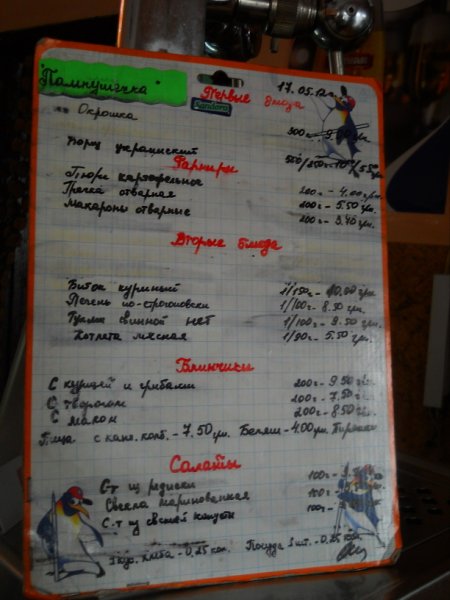 "Пампушечка"
17.05.12г.
Первые блюда
Sandora
Окрошка 300г
Борщ украинский
Гарниры
Пюре картофельное 200г - 4.00 грн.
Гречка отварная 200г - 5.50 грн.
Макароны отварные 200г - 3.40 грн.
Вторые блюда
Биток куриный 1/150г - 10.00 грн.
Печень по-строгоновски 1/100г - 8.50 грн.
Гуляш свинной нет 1/100г - 9.50 грн.
Котлета мясная 1/90г - 5.50 грн.
Блинчики
С курицей и грибами 200г - 9.50
С творогом 200г - 7.50
С маком 200г - 8.50
Пица с копч. колб. - 7.50 грн. Беляш - 4.00 грн. Пирожки
Салаты
С-т из редиски 100г
Свекла маринованная 100г
С-т из свежей капусты 100г
1 кус. хлеба - 0,25 коп. Посуда 1 шт. - 0,25 коп.